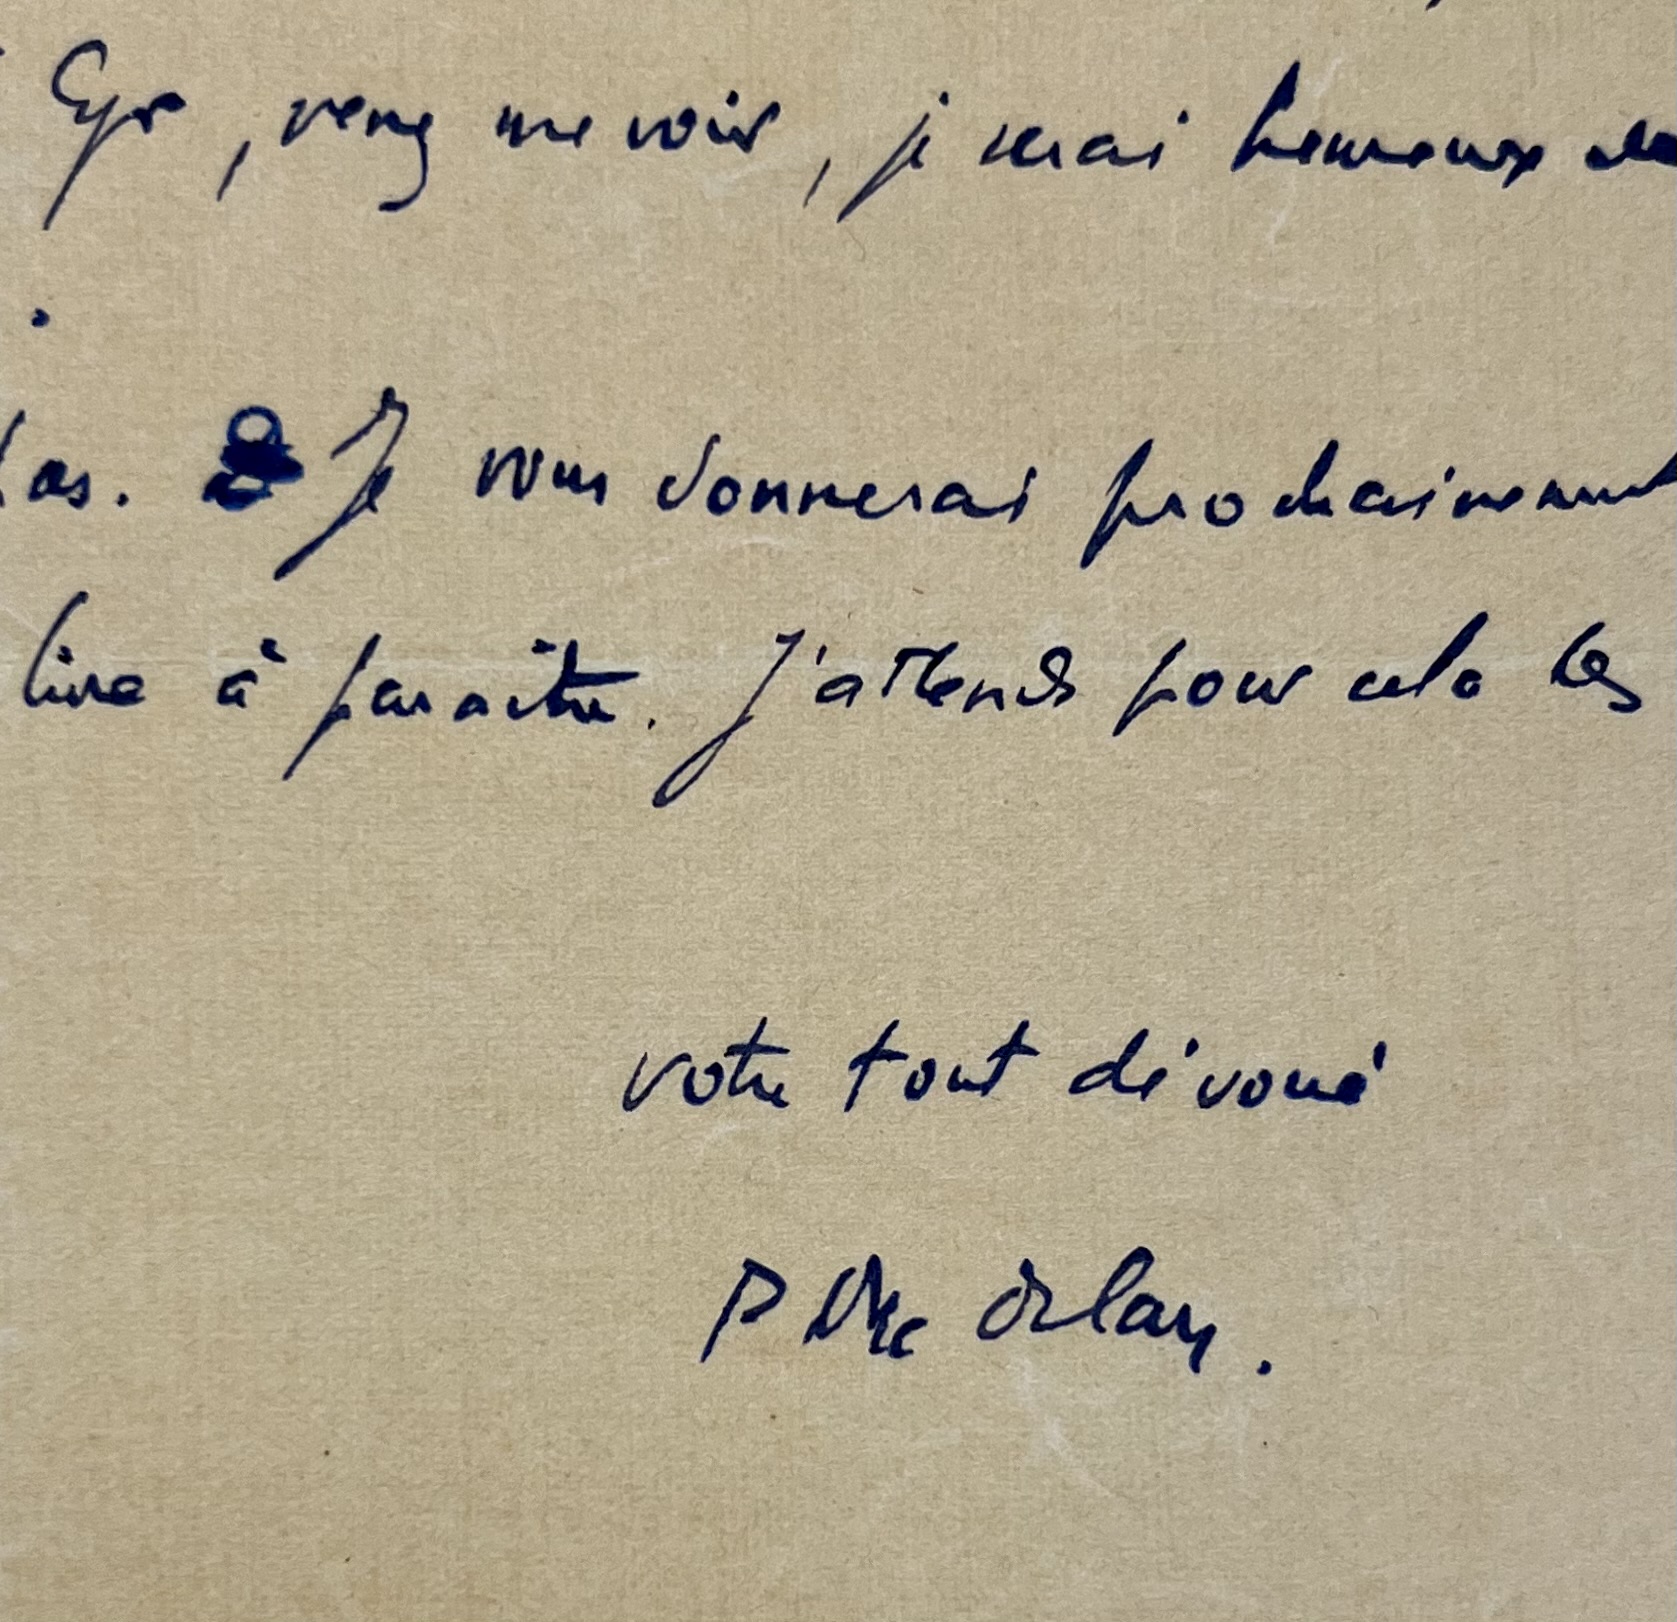 Cyr, venez me voir, je serai heureux de
.
las. Je vous donnerai prochainement
livre à paraître. J'attends pour cela les
votre tout dévoué
P Mac Orlan.